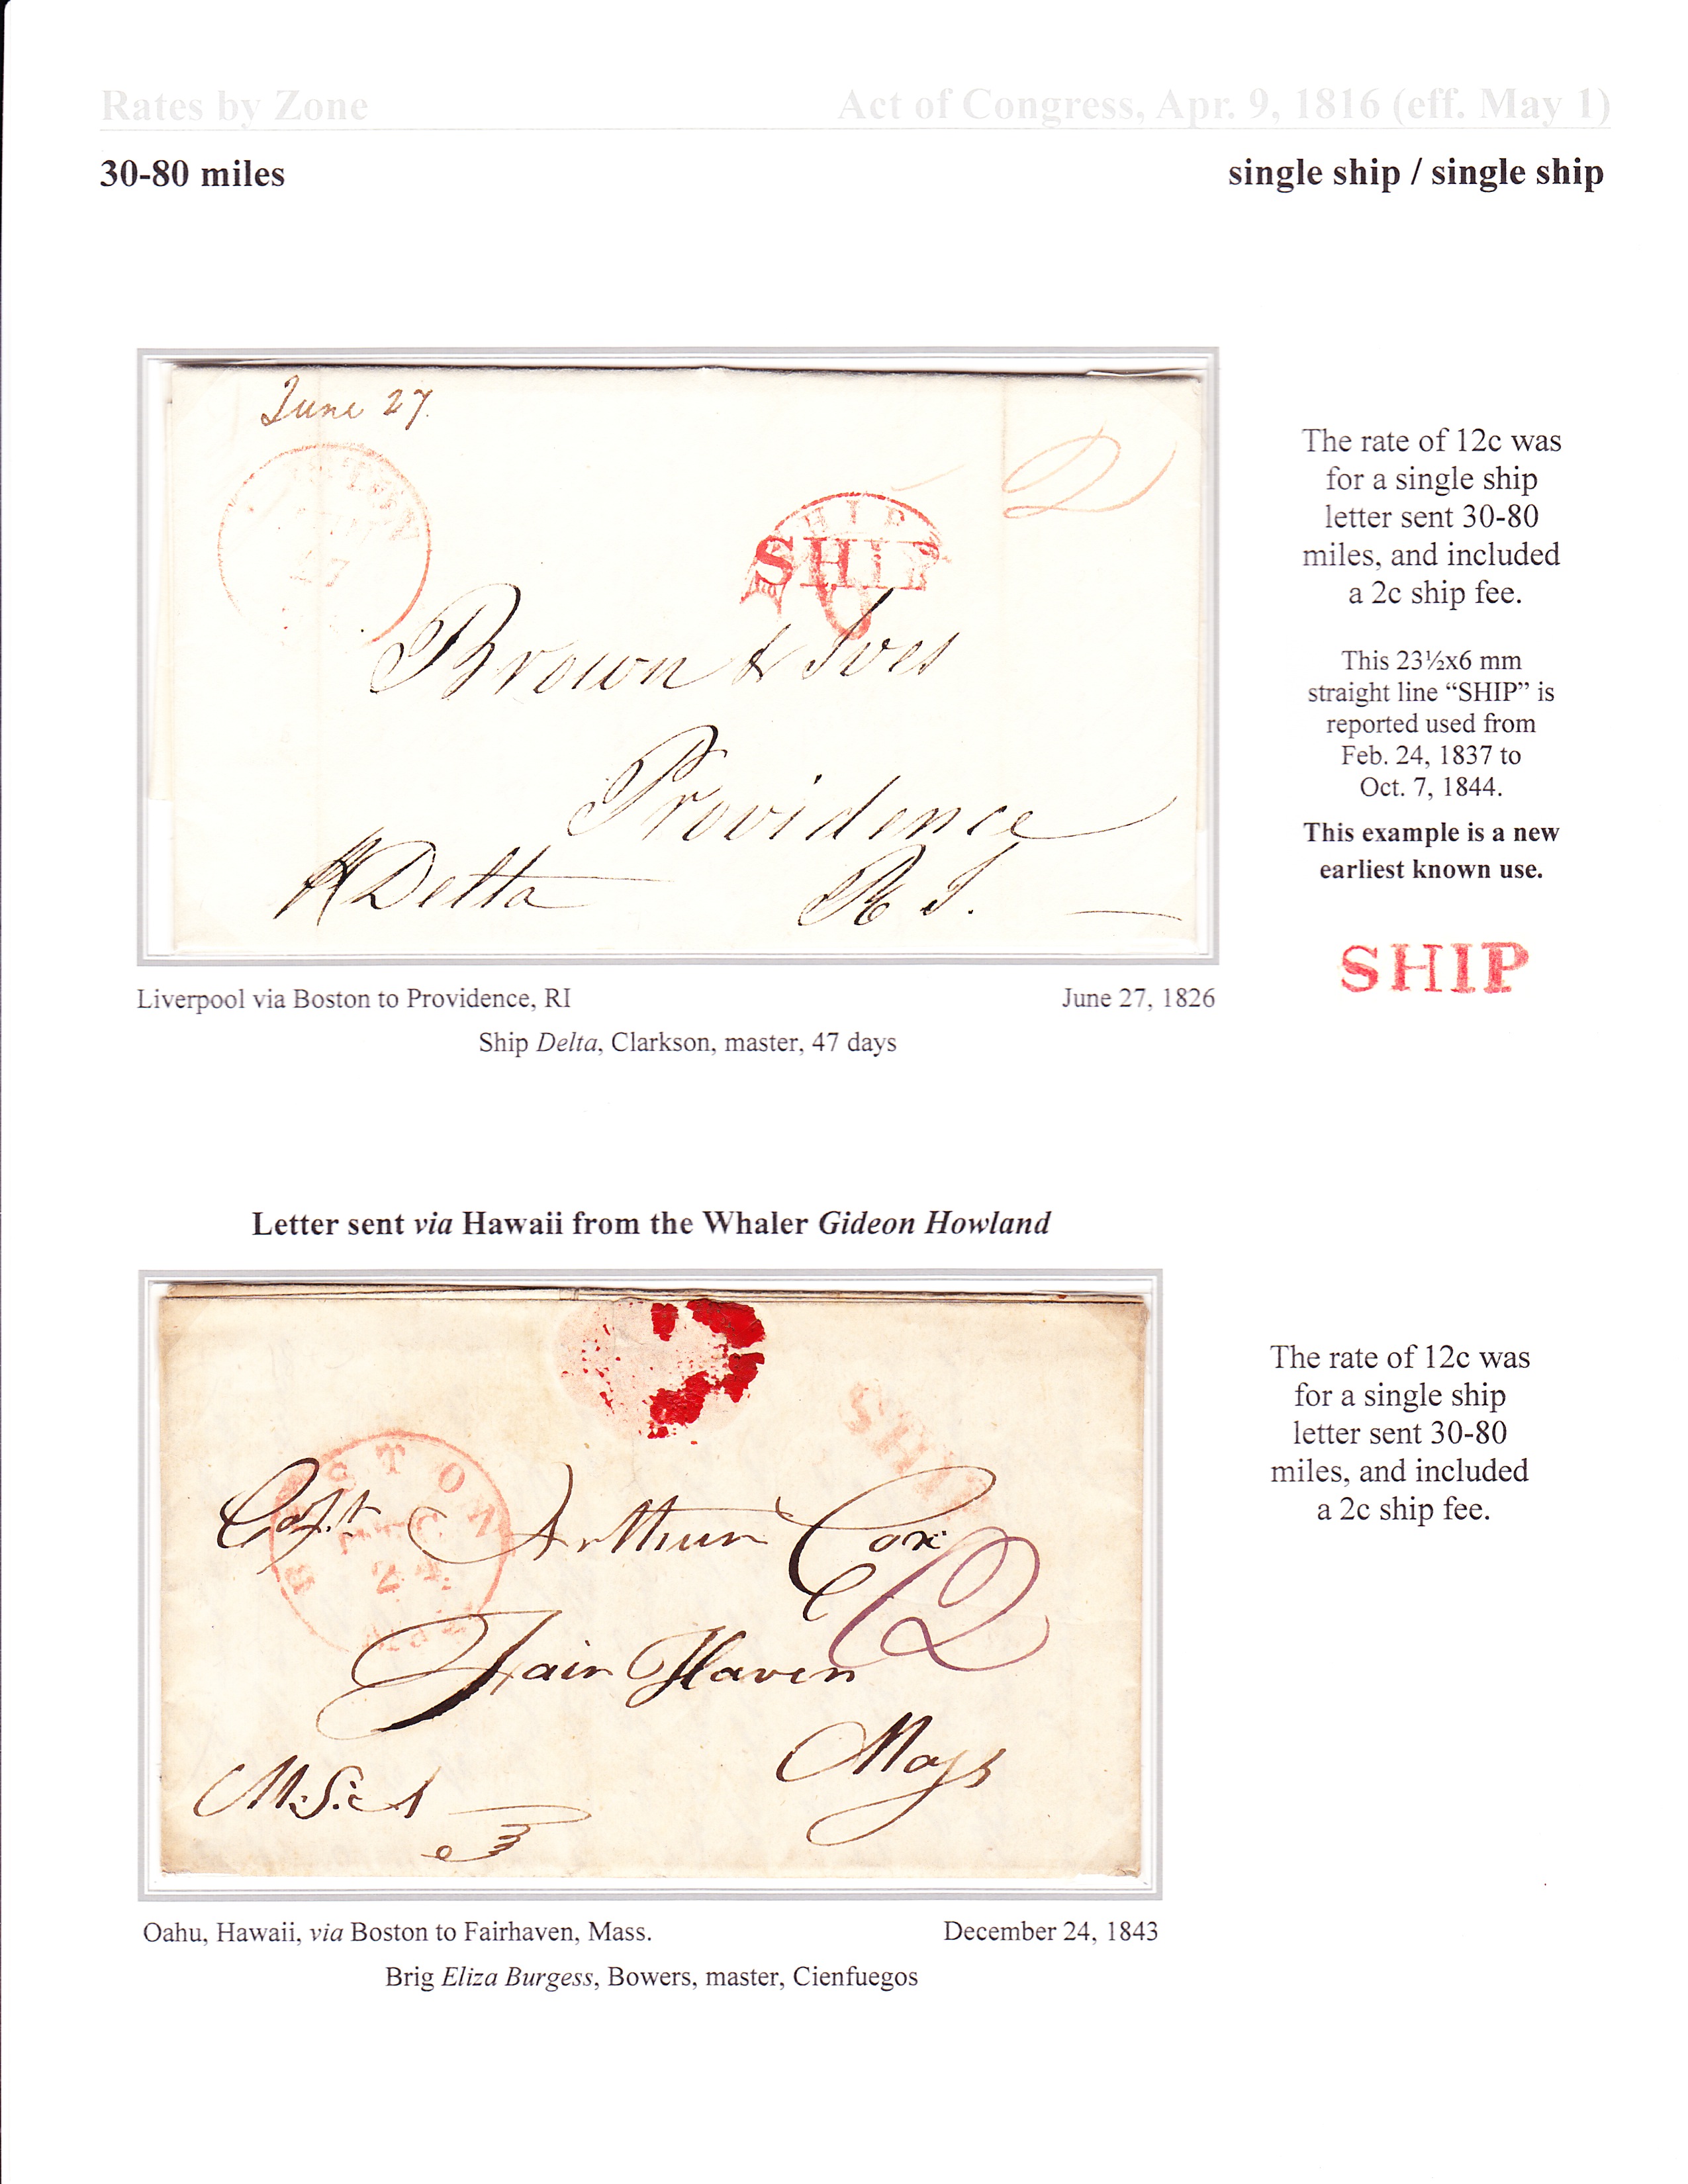 Rates by Zone Act of Congress, Apr. 9, 1816 (eff. May 1)
30-80 miles single ship / single ship
June 27.
27
SHIP
SHIP
Brown & Ives
Providence
Delta R I.
The rate of 12c was
for a single ship
letter sent 30-80
miles, and included
a 2c ship fee.
This 23½x6 mm
straight line “SHIP” is
reported used from
Feb. 24, 1837 to
Oct. 7, 1844.
This example is a new
earliest known use.
SHIP
Liverpool via Boston to Providence, RI June 27, 1826
Ship Delta, Clarkson, master, 47 days
Letter sent via Hawaii from the Whaler Gideon Howland
SHIP
BOSTON
24
Capt Arthur Cox
12
Fair Haven
Mass
The rate of 12c was
for a single ship
letter sent 30-80
miles, and included
a 2c ship fee.
Oahu, Hawaii, via Boston to Fairhaven, Mass. December 24, 1843
Brig Eliza Burgess, Bowers, master, Cienfuegos